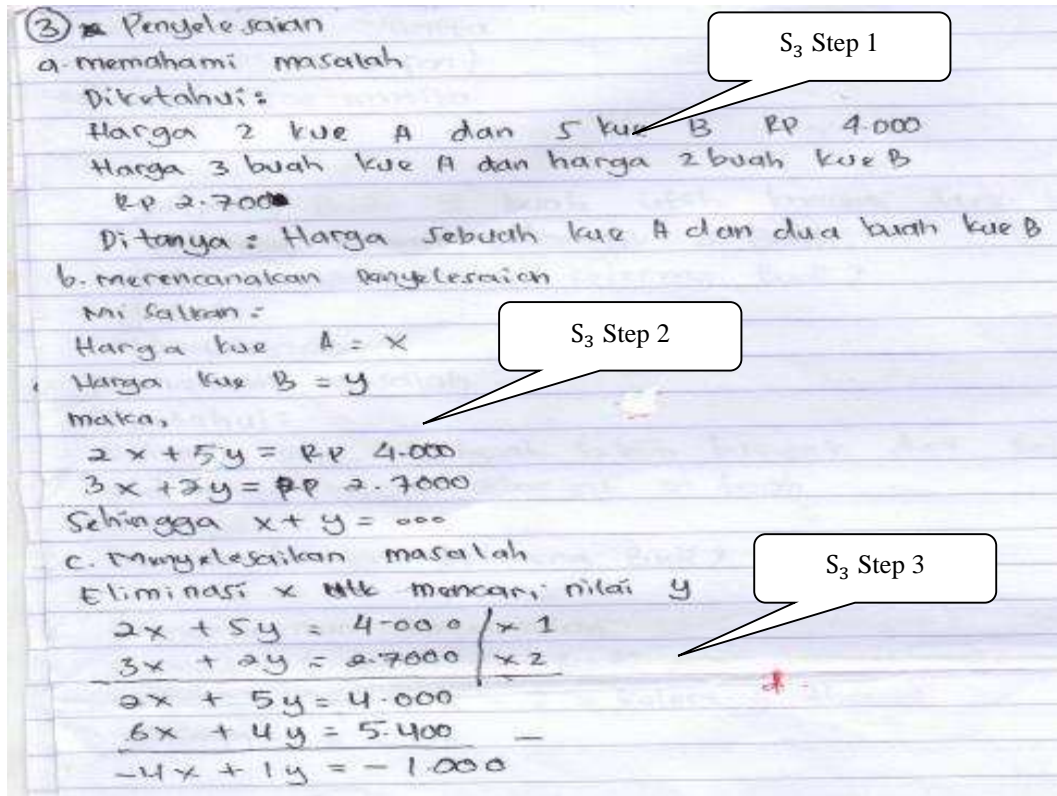 ③ Penyelesaian
a. memahami masalah
Diketahui:
Harga 2 kue A dan 5 kue B RP 4.000
Harga 3 buah kue A dan harga 2 buah kue B
RP 2.700
Ditanya : Harga sebuah kue A dan dua buah kue B
b. merencanakan penyelesaian
Misalkan :
Harga kue A = x
Harga kue B = y
maka,
2x + 5y = RP 4.000
3x + 2y = RP 2.7000
Sehingga x + y = ...
c. Menyelesaikan masalah
Eliminasi x utk mencari nilai y
2x + 5y = 4.000 | x 1
3x + 2y = 2.7000 | x 2
2x + 5y = 4.000
6x + 4y = 5.400 –
-4x + 1y = - 1.000
S₃ Step 1
S₃ Step 2
S₃ Step 3